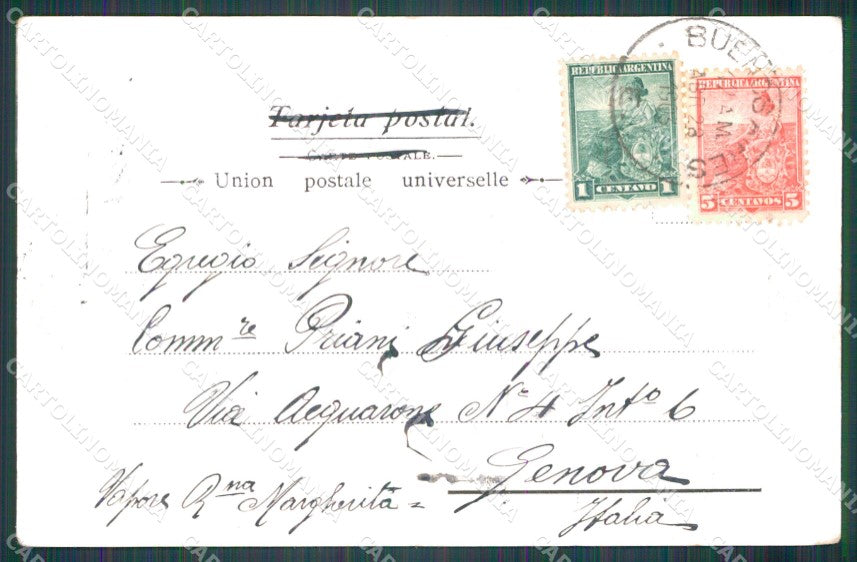 BUENOS AIRES
AM
REPUBLICA ARGENTINA
1 CENTAVO 1
REPUBLICA ARGENTINA
5 CENTAVOS 5
Tarjeta postal.
CARTE POSTALE.
Union postale universelle
Egregio Signore
Comm.re Priani Giuseppe
Via Acquarone No 4 Into 6
Genova
Italia
Vapore R.na Margherita =
CARTOLINOMANIA